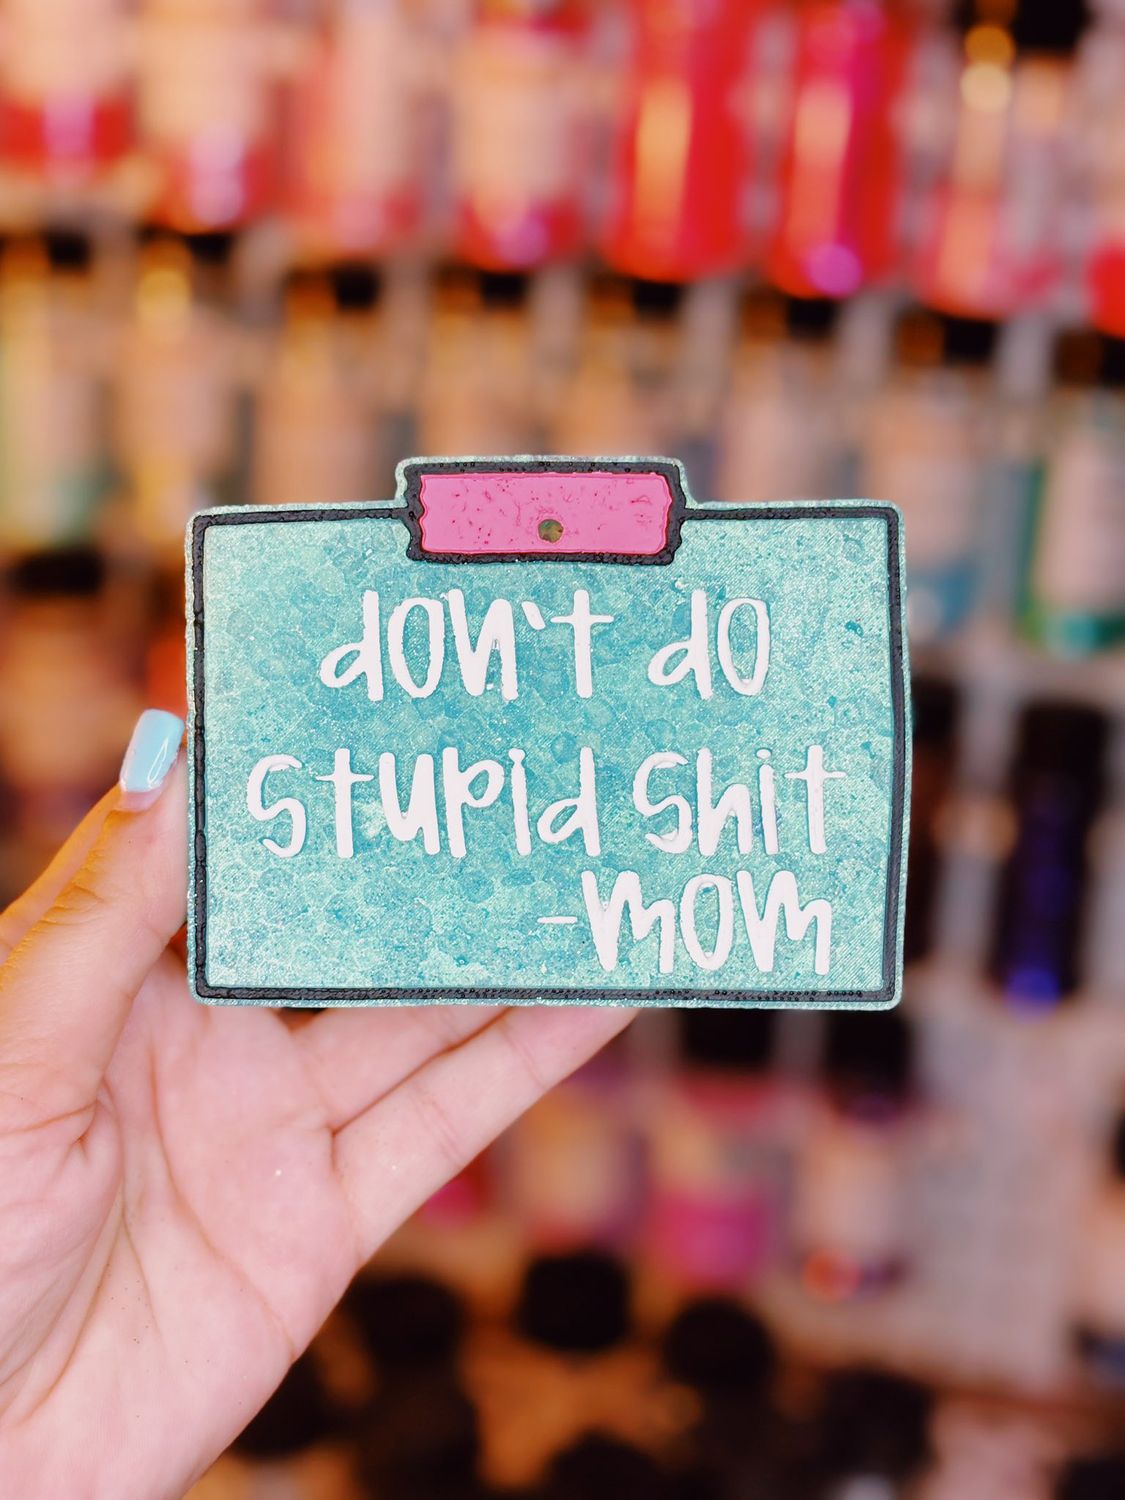 don't do
stupid shit
-mom